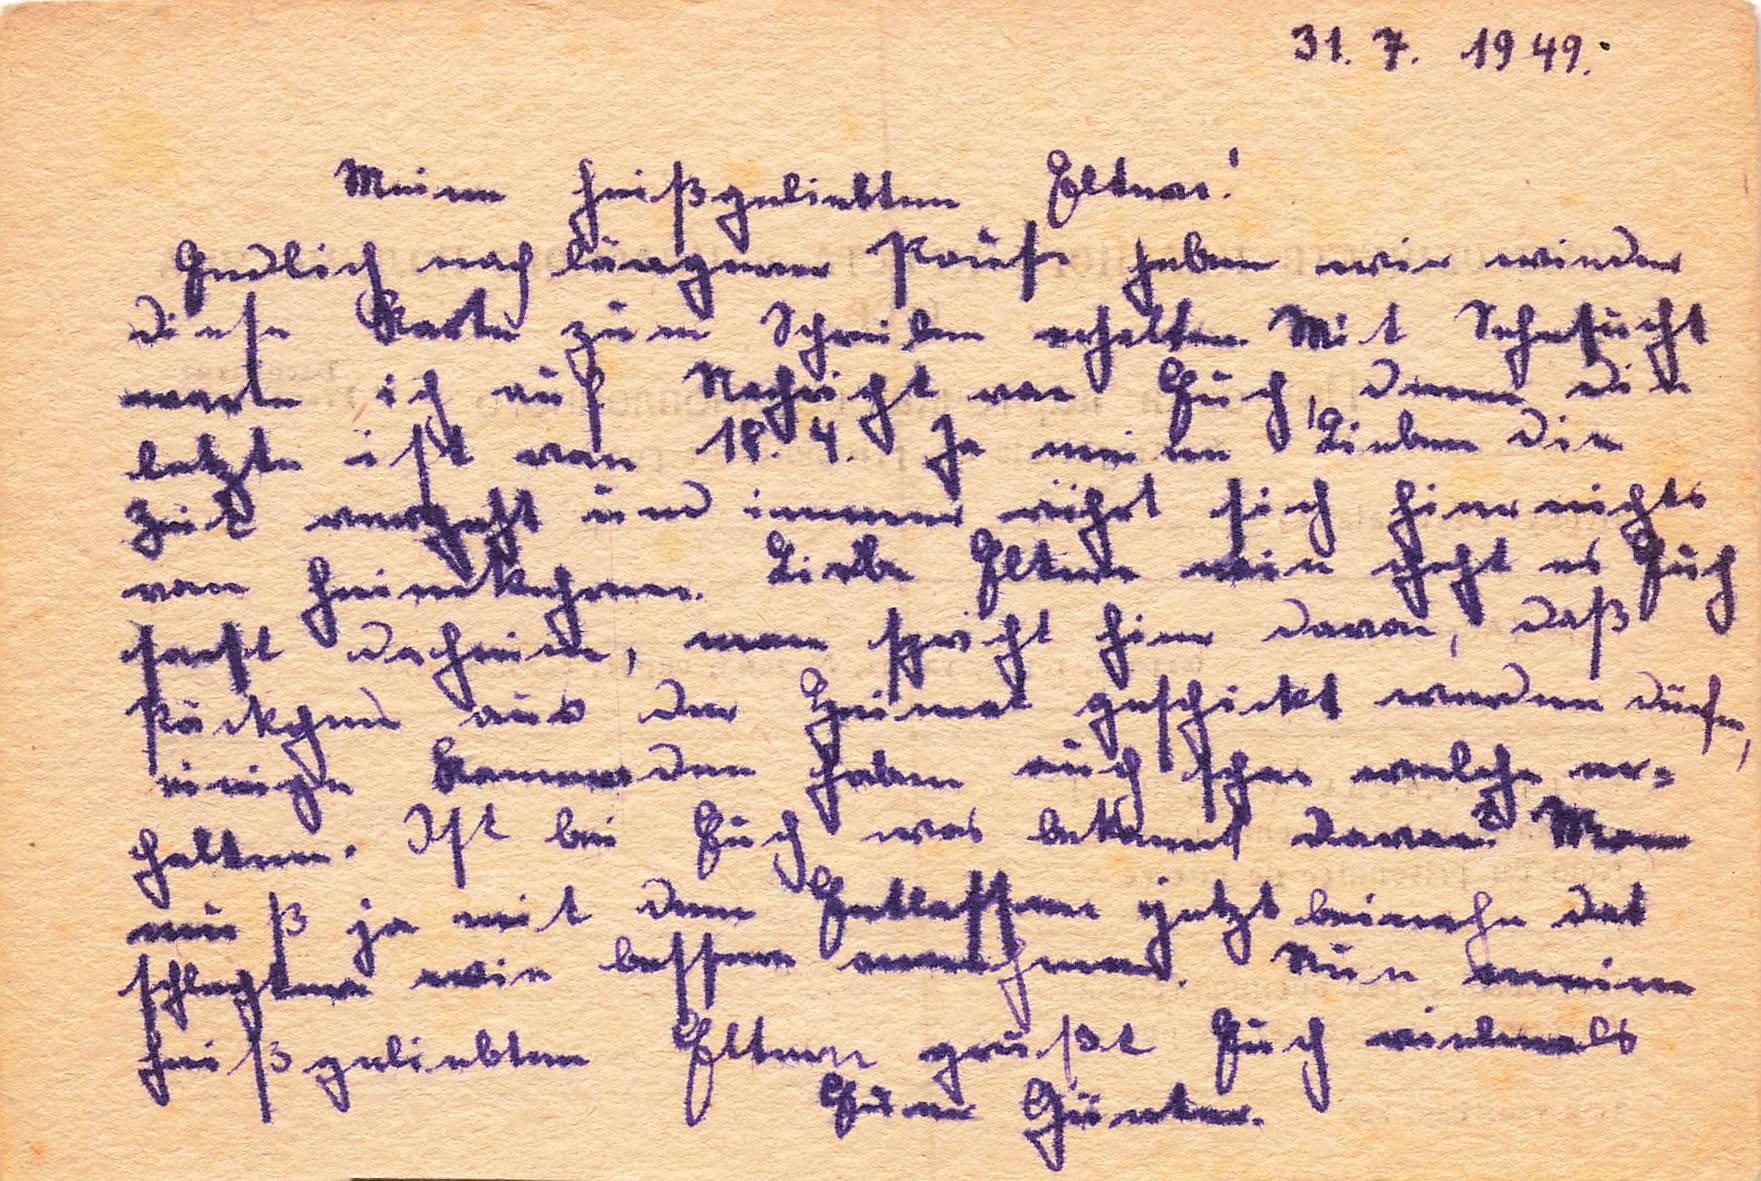 31. 7. 1949.
Meine heißgeliebten Eltern!
Endlich nach längerer Pause haben wir wieder
diese Karte zum Schreiben erhalten. Mit Sehnsucht
warte ich auf Nachricht von Euch, denn die
letzte ist von 18. 4. Ja meine Lieben die
Zeit vergeht und immer rührt sich hier nichts
von heimkehren. Liebe Eltern wie geht es Euch
sonst daheim, man spricht hier davon, daß
Päckchen aus der Heimat geschickt werden dürfen,
einige Kameraden haben auch schon welche er-
halten. Ist bei Euch was bekannt davon? Man
muß ja mit dem Entlassen jetzt beinahe das
schlechtere wie bessere annehmen. Nun meine
heißgeliebten Eltern grüßt Euch vielmals
Euer Günter.